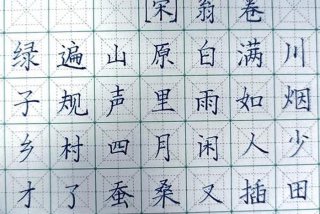 [宋]翁卷
绿遍山原白满川
子规声里雨如烟
乡村四月闲人少
才了蚕桑又插田